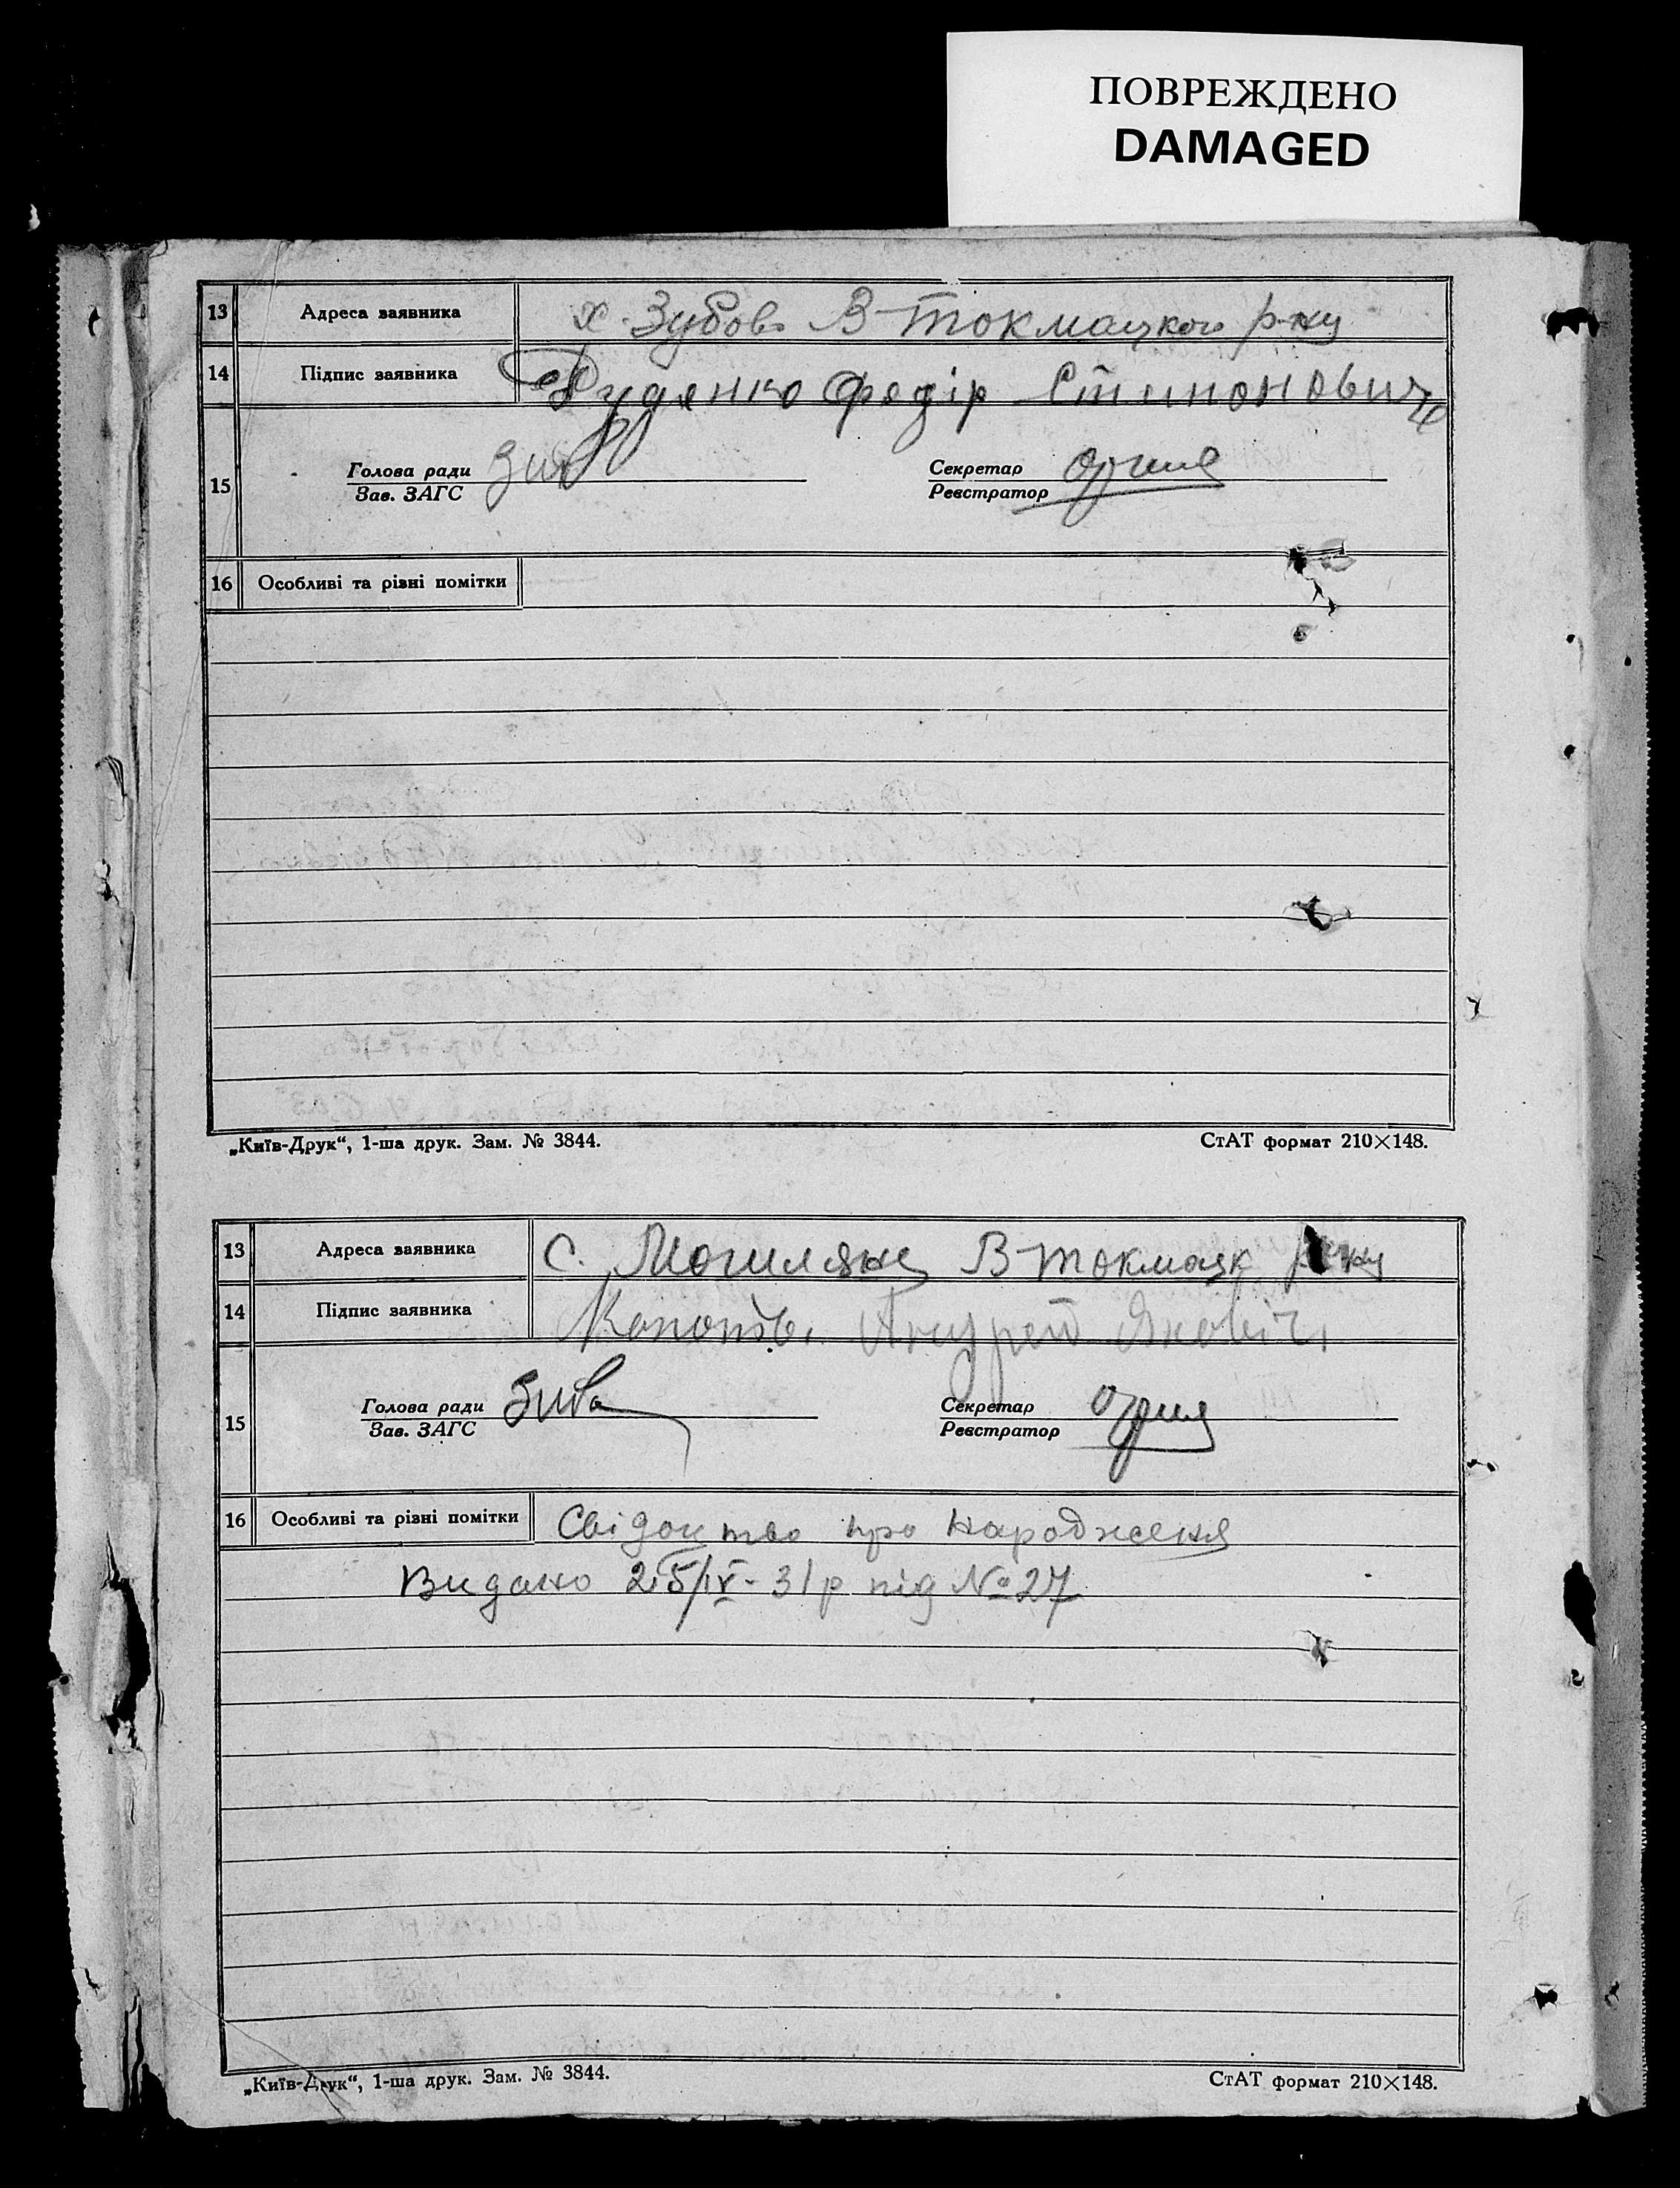 ПОВРЕЖДЕНО
DAMAGED
13 Адреса заявника х. Зубов В-Токмацкого р-ну
14 Підпис заявника Руденко Федір
Голова ради Секретар
15 Зав. ЗАГС Реєстратор
16 Особливі та різні помітки
„Київ-Друк“, 1-ша друк. Зам. № 3844. СтАТ формат 210×148.
13 Адреса заявника с. Могиляни В-Токмацк р-ну
14 Підпис заявника Андрей
Голова ради Секретар
15 Зав. ЗАГС Реєстратор
16 Особливі та різні помітки Свідоцтво про народження
Видано 25/IV-31р під №27
„Київ-Друк“, 1-ша друк. Зам. № 3844. СтАТ формат 210×148.